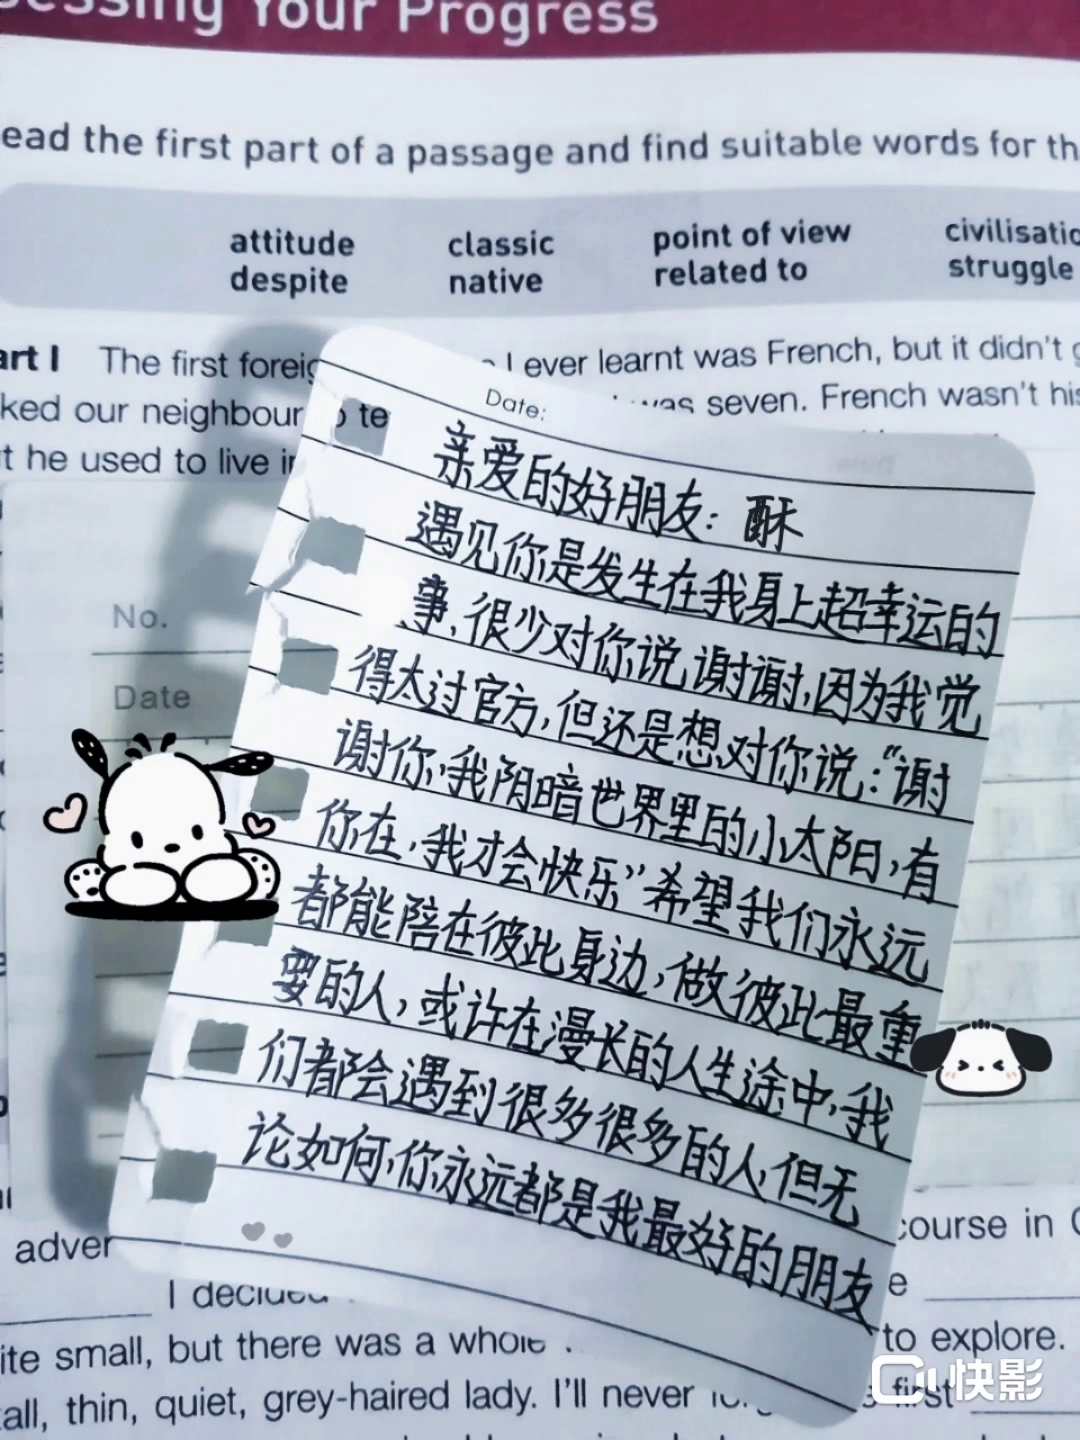 essing Your Progress
ead the first part of a passage and find suitable words for th
attitude classic point of view civilisatio
despite native related to struggle
art I The first foreig I ever learnt was French, but it didn't g
ked our neighbour to te was seven. French wasn't his
t he used to live in
Date:
亲爱的好朋友：酥
遇见你是发生在我身上超幸运的
事，很少对你说谢谢，因为我觉
得太过官方，但还是想对你说："谢
谢你，我阴暗世界里的小太阳，有
你在，我才会快乐"希望我们永远
都能陪在彼此身边，做彼此最重
要的人，或许在漫长的人生途中，我
们都会遇到很多很多的人，但无
论如何，你永远都是我最好的朋友
No.
Date
adver course in C
I decided e
ite small, but there was a whole to explore.
all, thin, quiet, grey-haired lady. I'll never first
快影